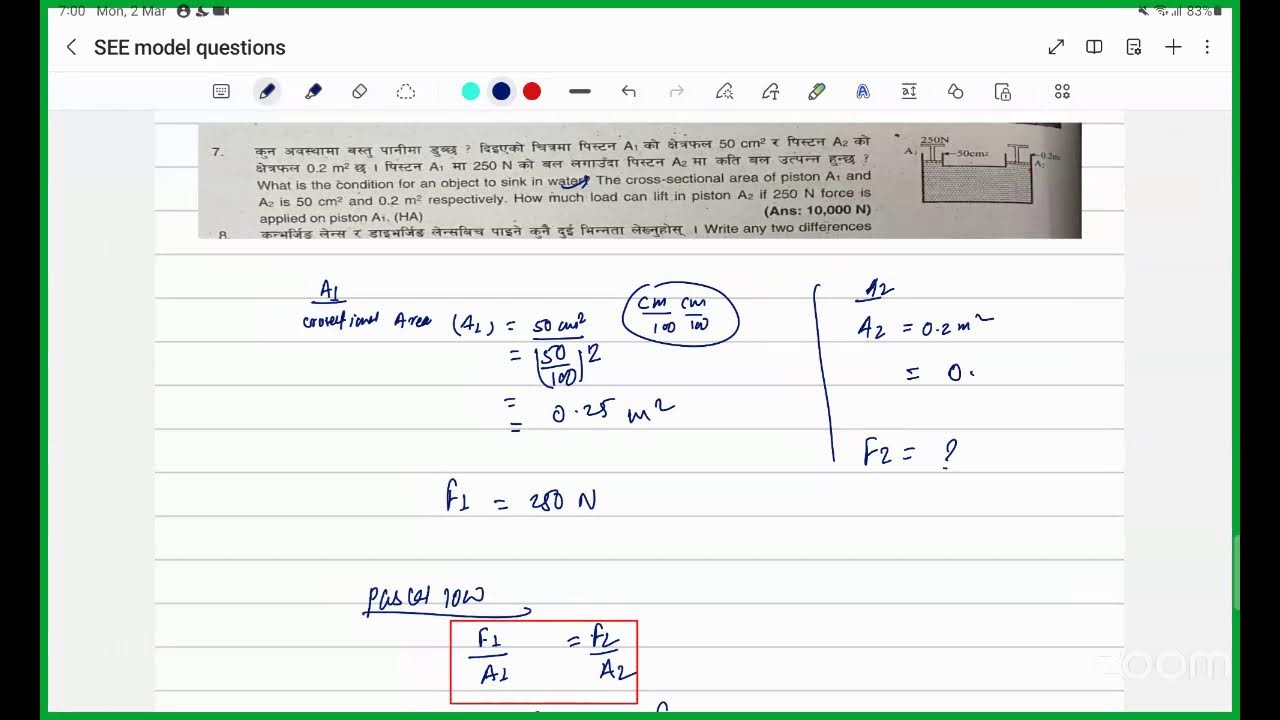 7:00 Mon, 2 Mar
83%
SEE model questions
7. कुन अवस्थामा बस्तु पानीमा डुब्छ ? दिइएको चित्रमा पिस्टन A₁ को क्षेत्रफल 50 cm² र पिस्टन A₂ को
क्षेत्रफल 0.2 m² छ । पिस्टन A₁ मा 250 N को बल लगाउँदा पिस्टन A₂ मा कति बल उत्पन्न हुन्छ ?
What is the condition for an object to sink in water? The cross-sectional area of piston A₁ and
A₂ is 50 cm² and 0.2 m² respectively. How much load can lift in piston A₂ if 250 N force is
applied on piston A₁. (HA) (Ans: 10,000 N)
250N
A₁ 50cm² 0.2m
A₂
8. कन्भर्जिङ लेन्स र डाइभर्जिङ लेन्सबिच पाइने कुनै दुई भिन्नता लेख्नुहोस् । Write any two differences
A₁
Area (A₁) = 50 cm²
= (50/100)2
=
= 0.25 m²
cm/100 cm/100
F₁ = 250 N
A₂
A₂ = 0.2 m²
= 0.
F₂ = ?
F₁/A₁ = F₂/A₂
zoom